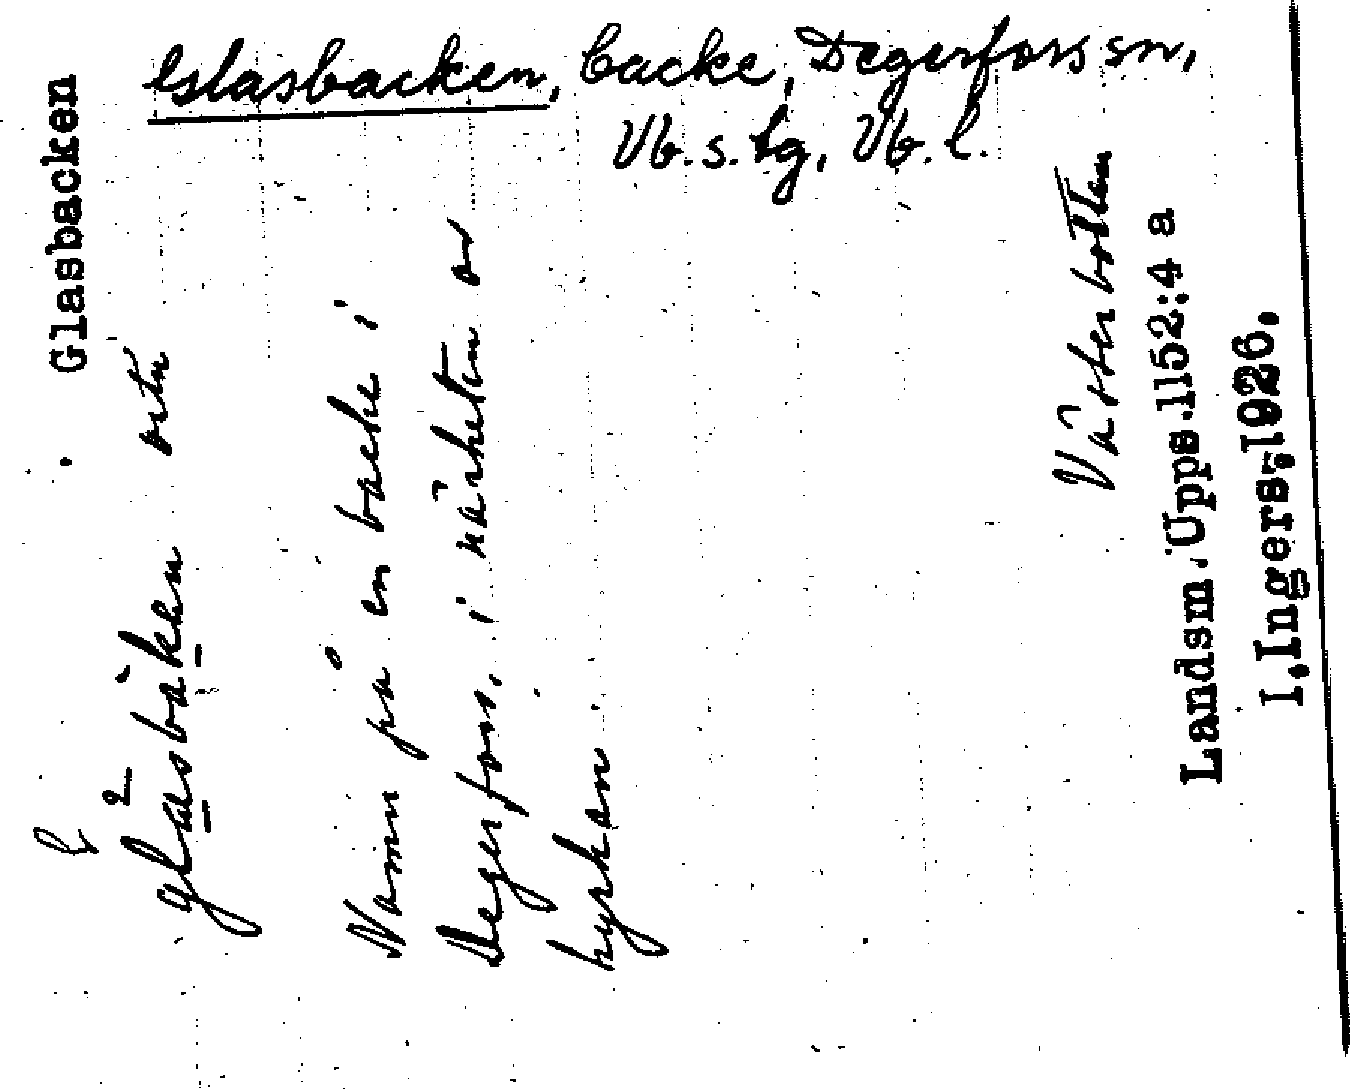 Glasbacken, backe, Degerfors sn,
Vb. s. lg, Vb. l.
Glasbacken
Namn på en backe i
Degerfors, i närheten av
kyrkan.
Västerbotten
Landsm. Upps. 1152:4 a
I. Ingers, 1926.